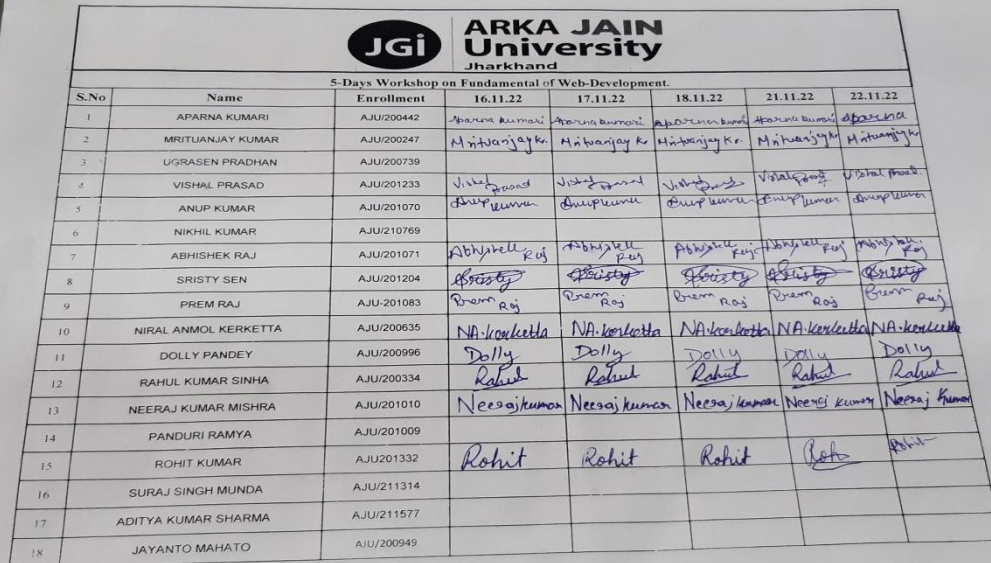 JGi
ARKA JAIN
University
Jharkhand
5-Days Workshop on Fundamental of Web-Development.
S.No Name Enrollment 16.11.22 17.11.22 18.11.22 21.11.22 22.11.22
1 APARNA KUMARI AJU/200442 Aparna kumari Aparna kumari Aparna kumari Aparna kumari Aparna
2 MRITUANJAY KUMAR AJU/200247 Mrituanjay Kr. Mrituanjay Kr Mrituanjay Kr. Mrituanjay Kr Mrituanjay Kr.
3 UGRASEN PRADHAN AJU/200739
4 VISHAL PRASAD AJU/201233 Vishal prasad Vishal prasad Vishal prasad Vishal prasad Vishal prasad
5 ANUP KUMAR AJU/201070 Anup kumar Anup kumar Anup kumar Anup kumar Anup kumar
6 NIKHIL KUMAR AJU/210769
7 ABHISHEK RAJ AJU/201071 Abhishek Raj Abhishek Raj Abhishek Raj Abhishek Raj Abhishek Raj
8 SRISTY SEN AJU/201204 Sristy Sristy Sristy Sristy Sristy
9 PREM RAJ AJU-201083 Prem Raj Prem Raj Prem Raj Prem Raj Prem Raj
10 NIRAL ANMOL KERKETTA AJU/200635 NA.kerketta NA.kerketta NA.kerketta NA.kerketta NA.kerketta
11 DOLLY PANDEY AJU/200996 Dolly Dolly Dolly Dolly Dolly
12 RAHUL KUMAR SINHA AJU/200334 Rahul Rahul Rahul Rahul Rahul
13 NEERAJ KUMAR MISHRA AJU/201010 Neeraj kumar Neeraj kumar Neeraj kumar Neeraj kumar Neeraj Kumar
14 PANDURI RAMYA AJU/201009
15 ROHIT KUMAR AJU201332 Rohit Rohit Rohit Rohit
16 SURAJ SINGH MUNDA AJU/211314
17 ADITYA KUMAR SHARMA AJU/211577
18 JAYANTO MAHATO AJU/200949